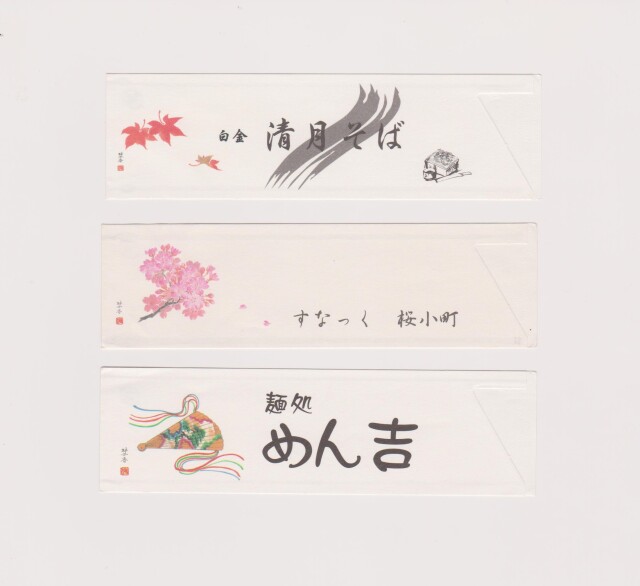 白金 清月そば
すなっく 桜小町
麺処
めん吉